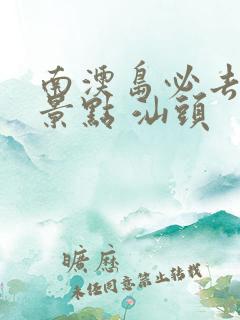 南澳島必去
景點 汕頭
曠歷
未經同意禁止轉載